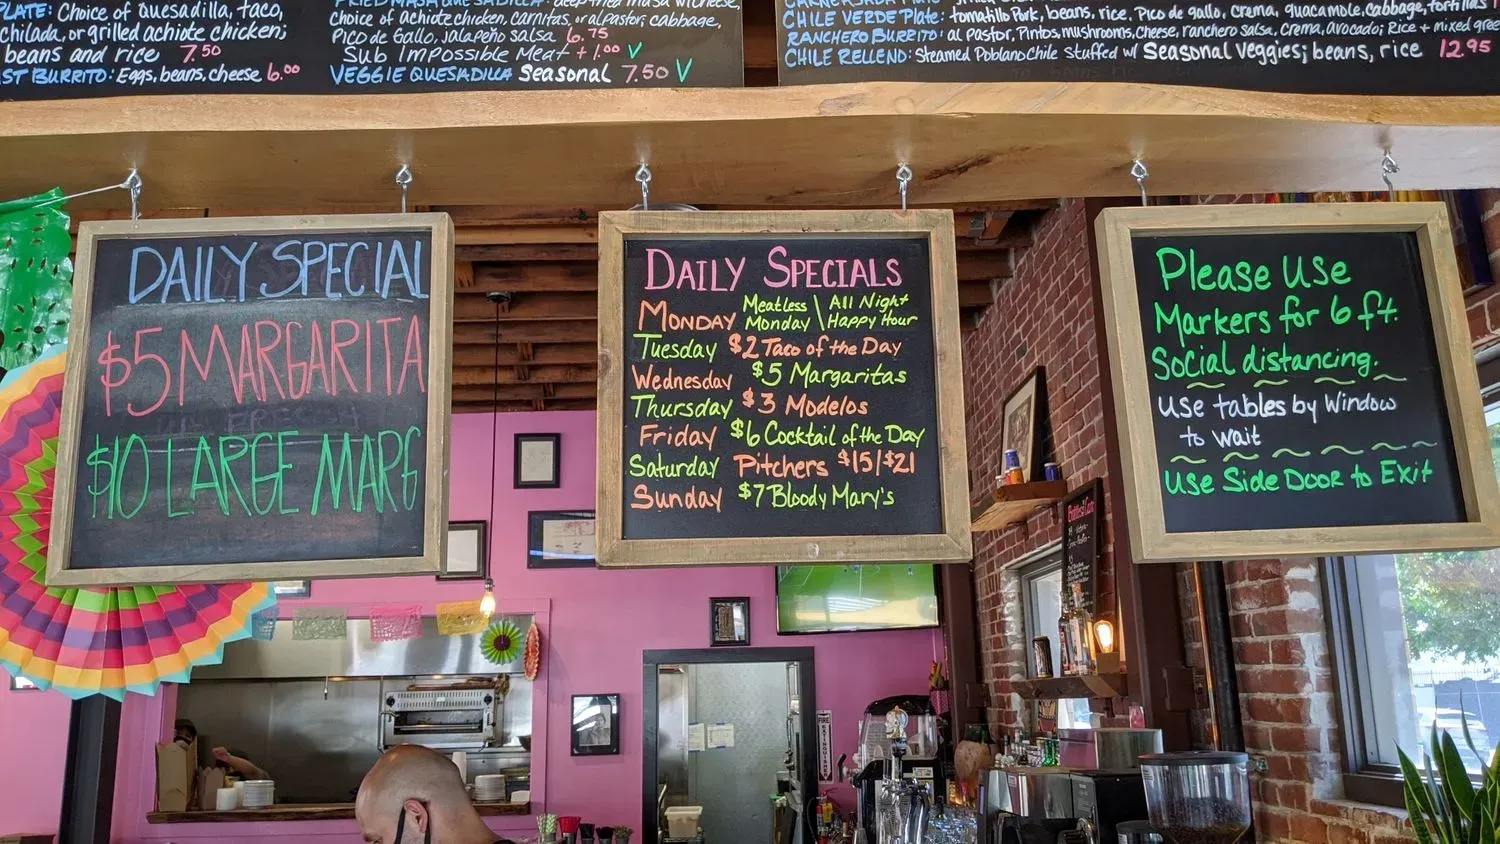 PLATE: Choice of Quesadilla, taco,
chilada, or grilled achiote chicken;
beans and rice 7.50
ST BURRITO: Eggs, beans, cheese 6.00
FRIED MASA QUESADILLA: deep fried masa w/ cheese,
choice of achiote chicken, carnitas, or al pastor, cabbage,
Pico de Gallo, jalapeño salsa 6.75
Sub Impossible Meat +1.00 V
VEGGIE QUESADILLA Seasonal 7.50 V
CHILE VERDE Plate: tomatillo Pork, beans, rice, Pico de gallo, crema, guacamole, cabbage, tortillas
RANCHERO BURRITO: al pastor, Pintos, mushrooms, cheese, ranchero salsa, crema, avocado; Rice + mixed gree
CHILE RELLENO: Steamed Poblano Chile stuffed w/ Seasonal Veggies; beans, rice 12.95
DAILY SPECIAL
$5 MARGARITA
$10 LARGE MARG
DAILY SPECIALS
MONDAY Meatless Monday \ All Night Happy Hour
Tuesday $2 Taco of the Day
Wednesday $5 Margaritas
Thursday $3 Modelos
Friday $6 Cocktail of the Day
Saturday Pitchers $15/$21
Sunday $7 Bloody Mary's
Please Use
Markers for 6 ft.
Social distancing.
Use tables by Window
to Wait
Use Side Door to Exit
FIRE EXTINGUISHER